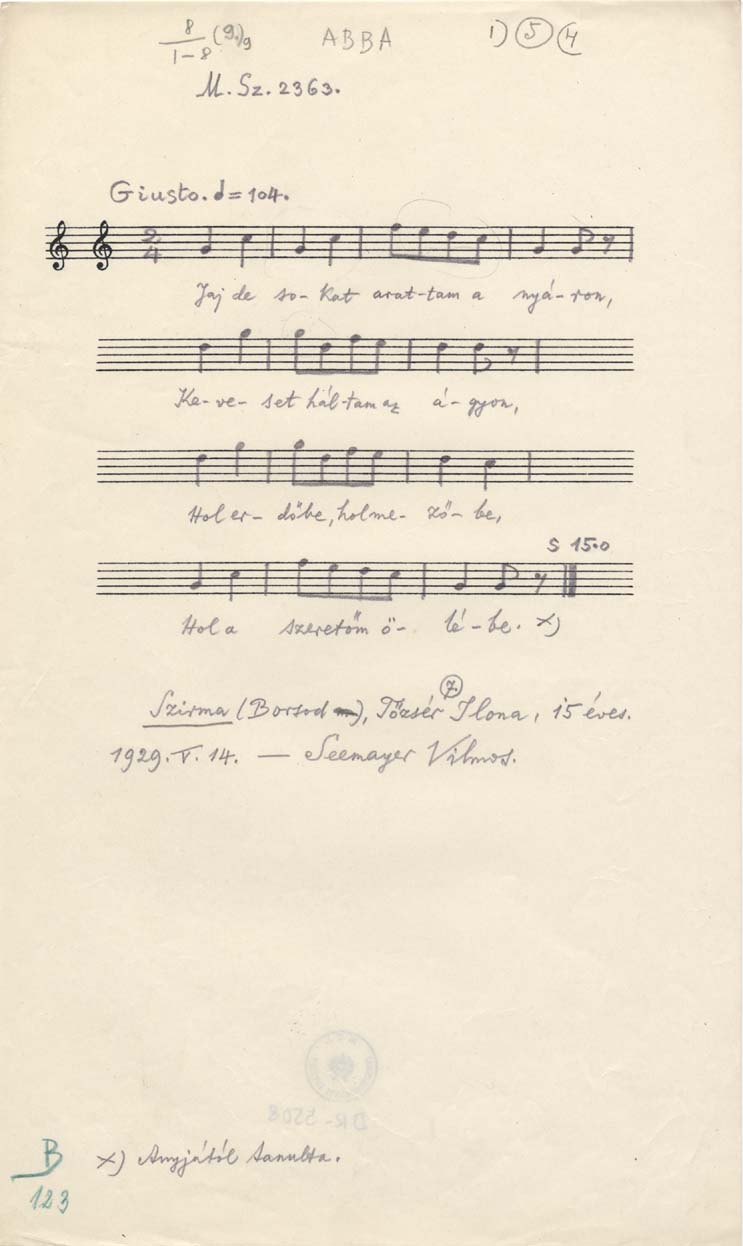 8/1-8 (9.)9 ABBA 1) 5 4
M. Sz. 2363.
Giusto. = 104.
2/4
Jaj de so- kat arat-tam a nyá-ron,
Ke-ve- set hál-tam az á-gyon,
Hol er- dőbe, hol me- ző-be,
S 15.0
Hol a szeretőm ö- lé-be. x)
7.
Szirma (Borsod), Tőzsér Ilona, 15 éves.
1929. V. 14. — Seemayer Vilmos.
DR-5508
B x) Anyjától tanulta.
123